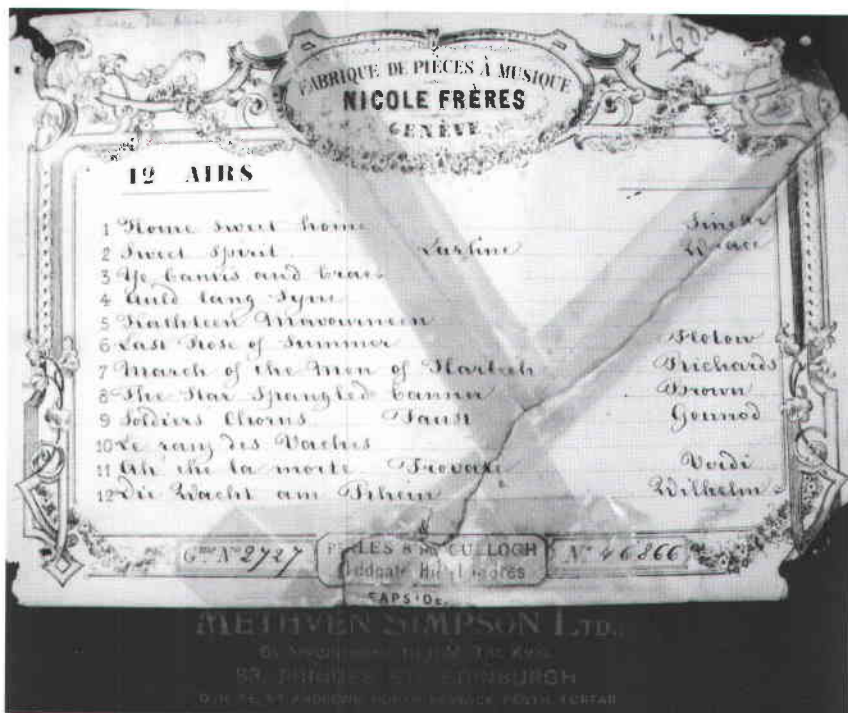 FABRIQUE DE PIÈCES À MUSIQUE
NICOLE FRÈRES
GENÈVE
12 AIRS
1 Home sweet home
2 Sweet Spirit Lurline
3 Ye banks and braes
4 Auld lang Syne
5 Kathleen Mavourneen
6 Last Rose of Summer Flotow
7 March of the Men of Harlech Richards
8 The Star Spangled banner Brown
9 Soldiers Chorus Faust Gounod
10 Le ranz des Vaches
11 Ah! che la morte Trovatore Verdi
12 Die Wacht am Rhein Wilhelm
Gme No 2727
& Mc CULLOGH
No 46866
METHVEN SIMPSON LTD.
83, PRINCES ST. EDINBURGH